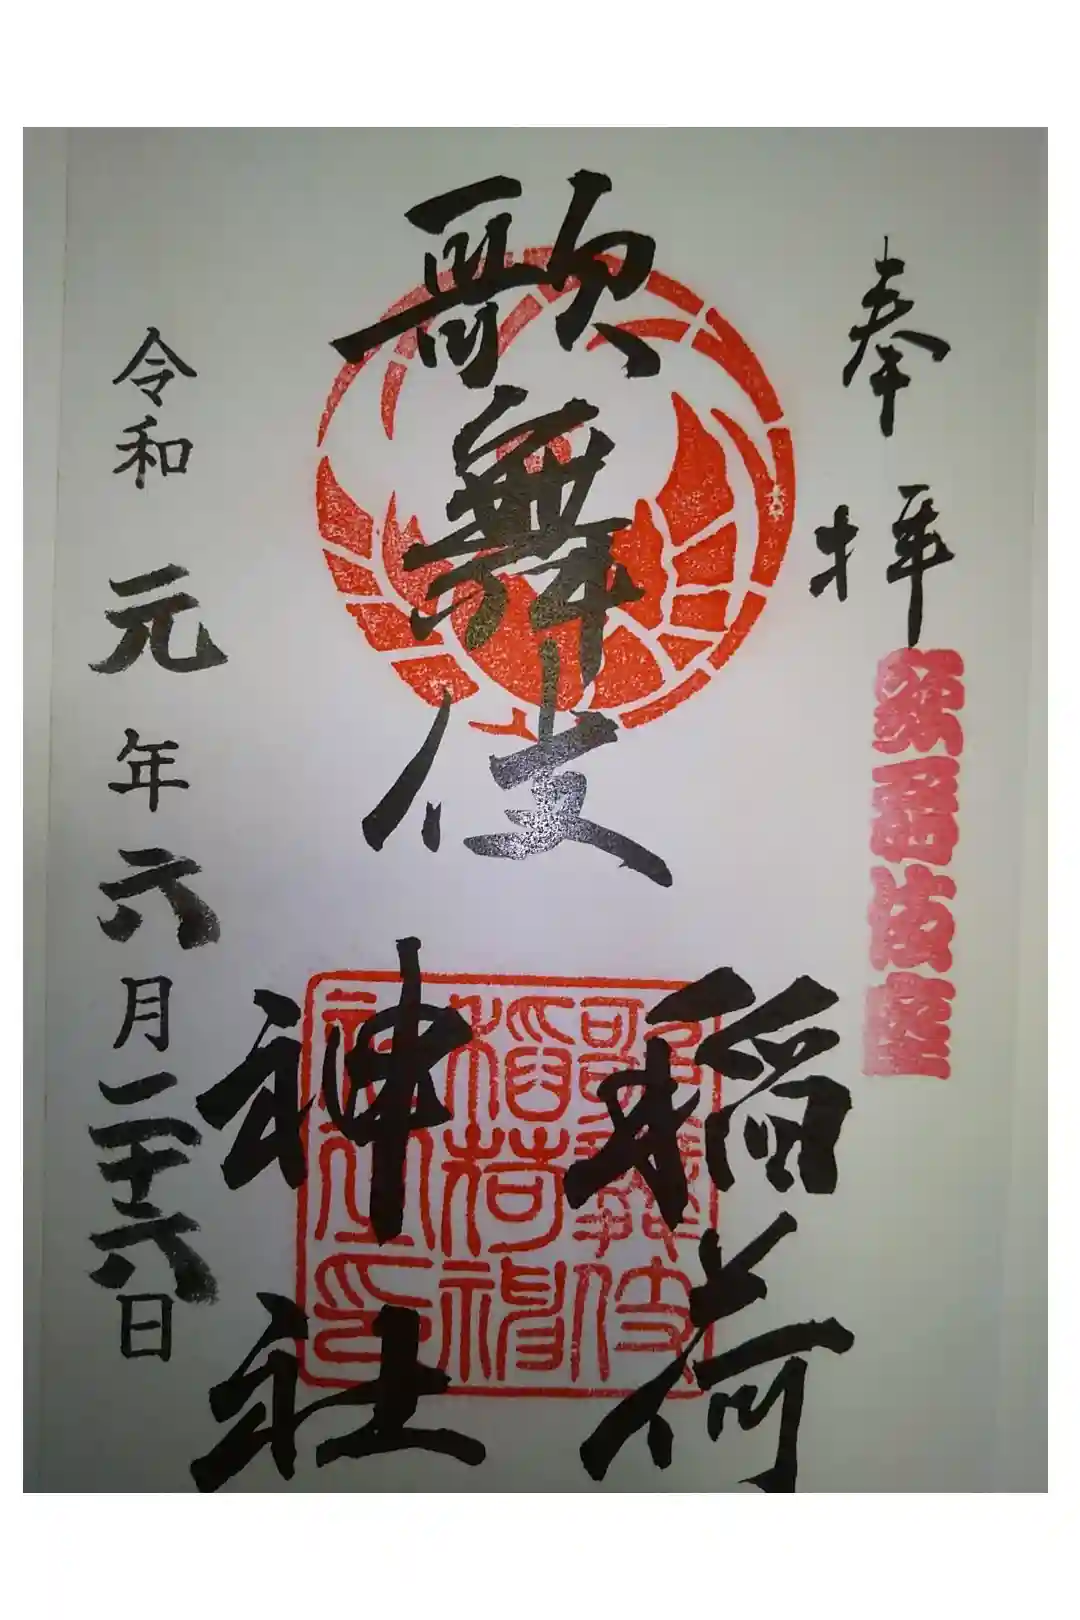 奉拝
歌舞伎
稲荷
神社
歌舞伎
稲荷神
社之印
令和元年六月二十六日